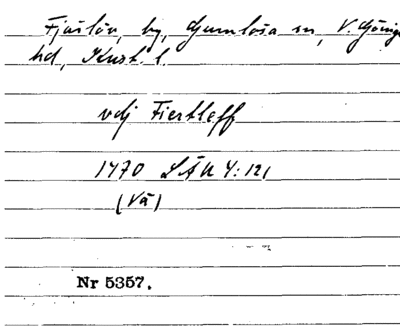 Fjärlöv, by, Gumlösa sn, V. Göinge
hd, Krist. l.
vdj Fiertleff
1470 LÄU 4:121
(Vä)
Nr 5357.